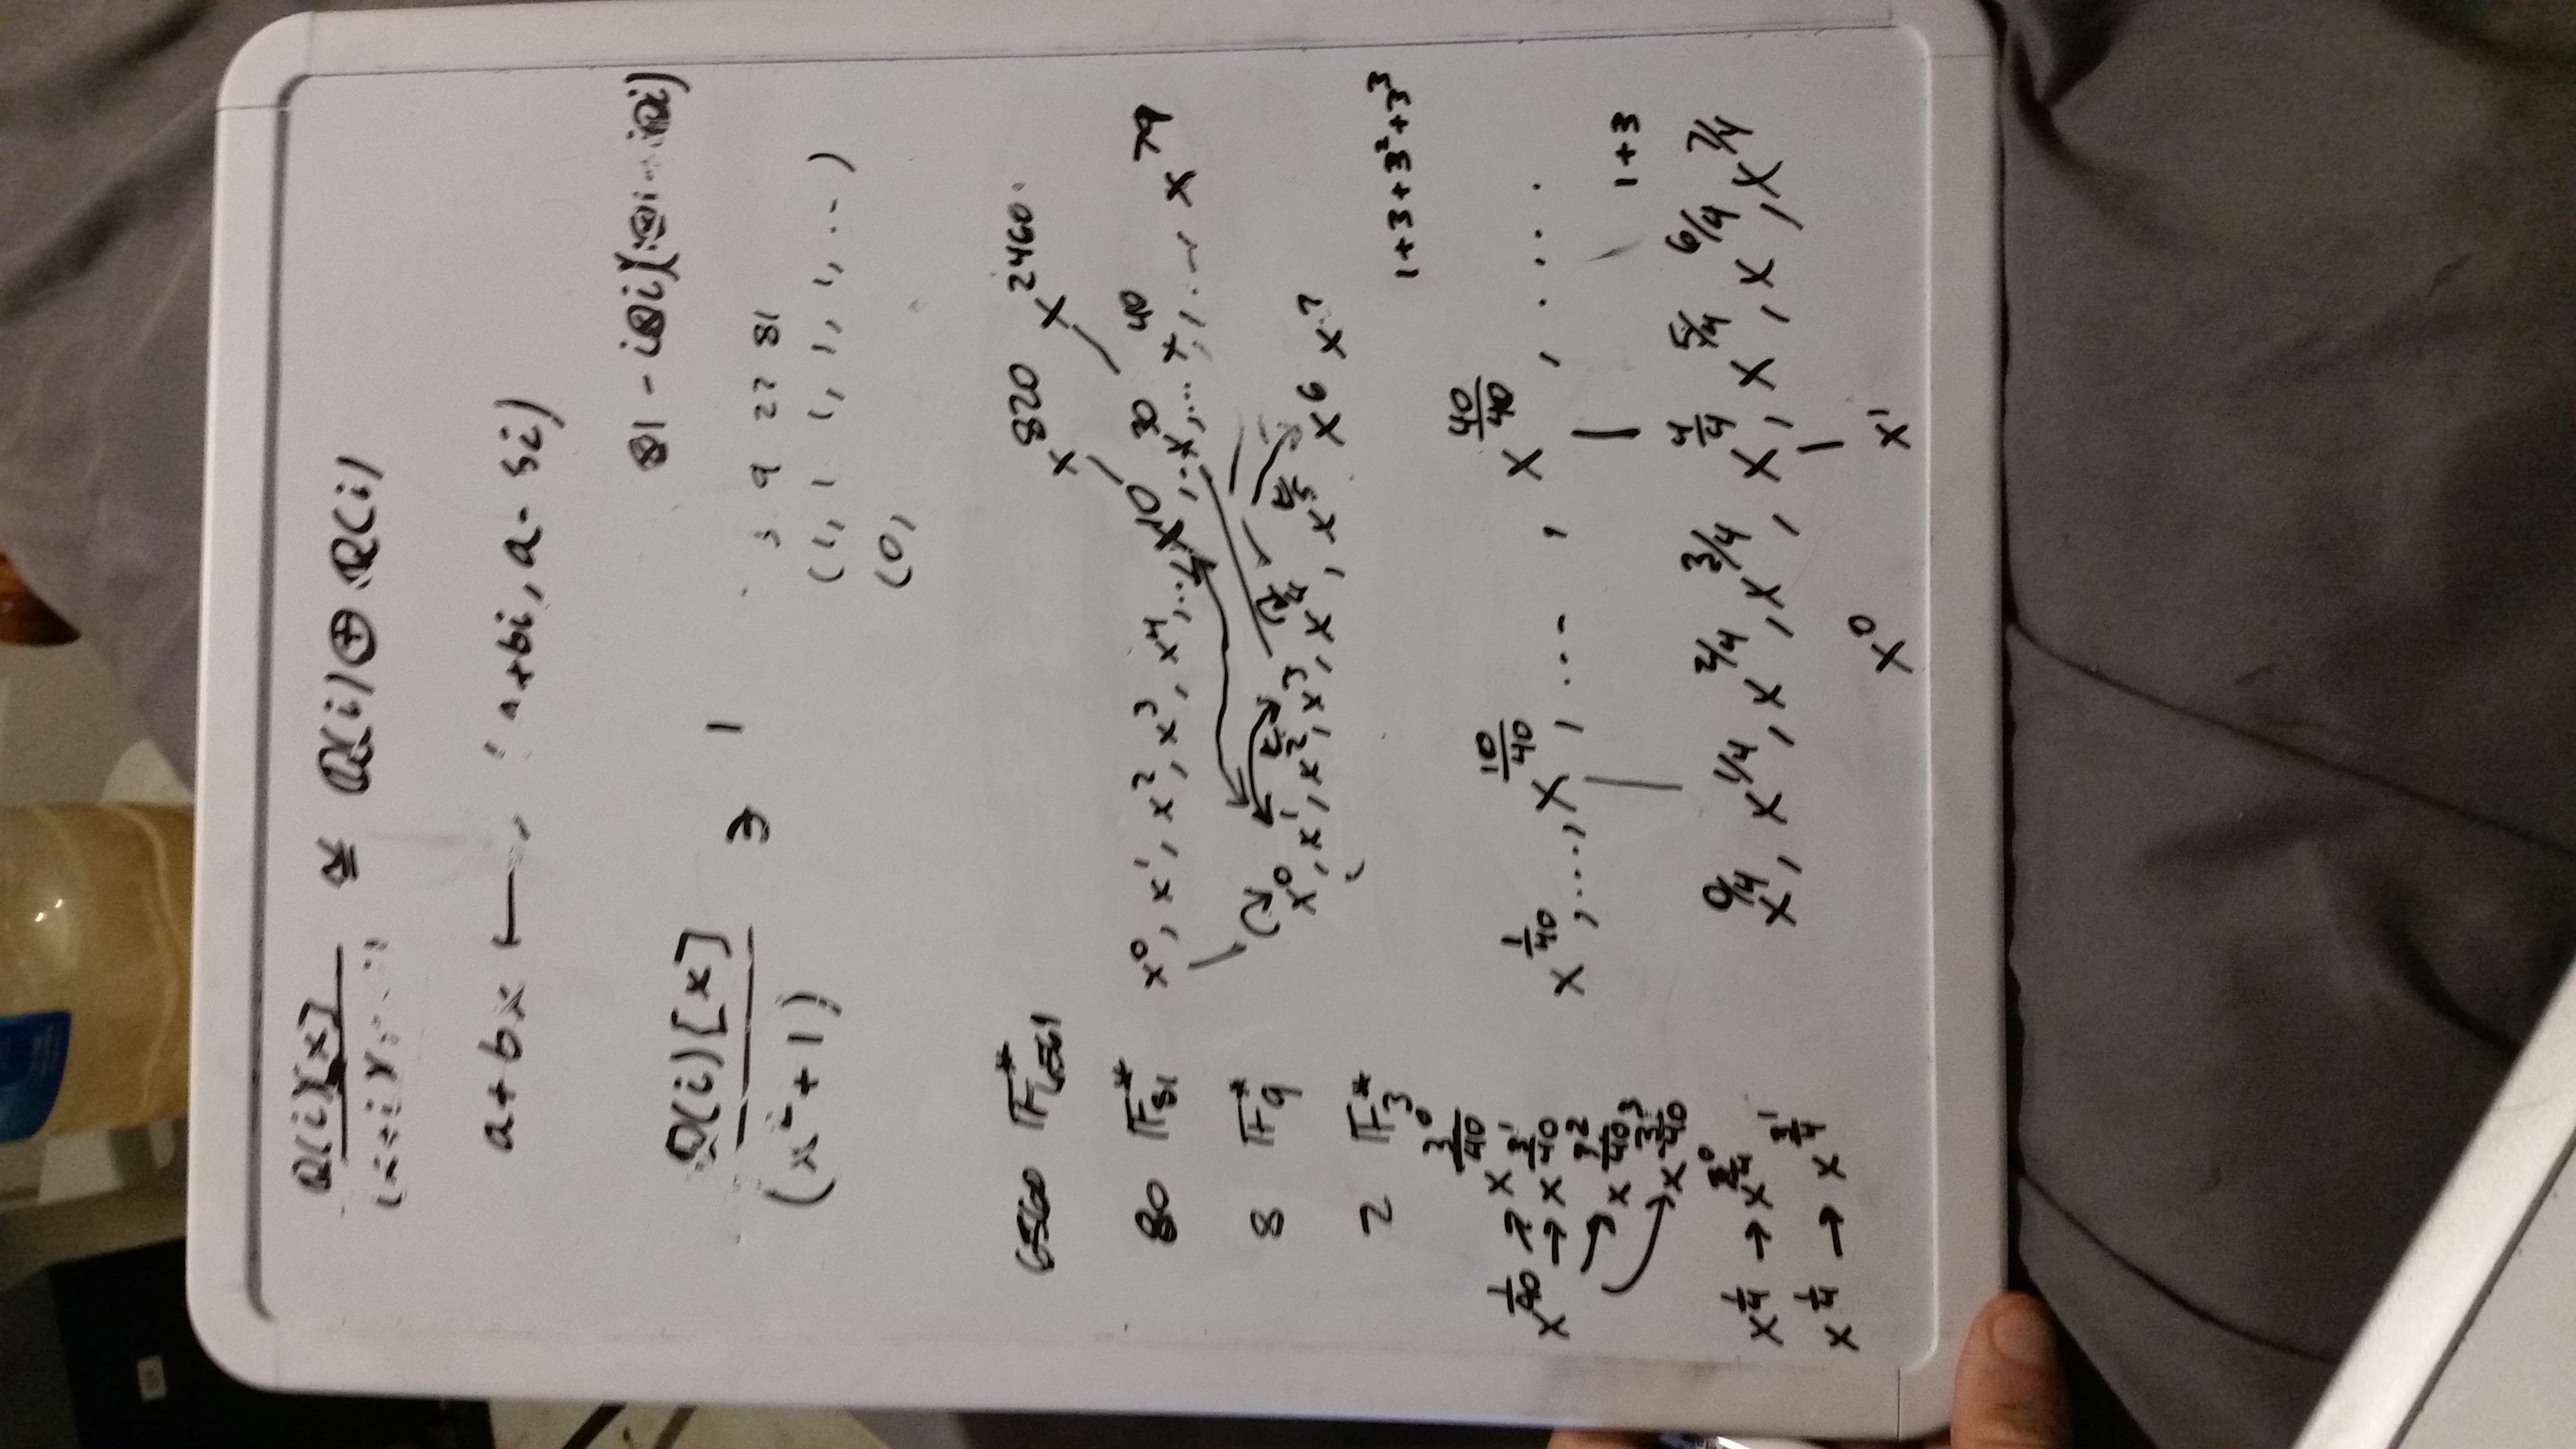 Q(i)[x] ≅ Q(i) ⊕ Q(i)
(x+i)(x-i)
a+bx ⟼ (a+bi, a-bi)
Q(i)[x] ∋ 1
(x²+1)
3 9 27 81
(1, 1 1, 1, 1, ... )
(0,
6560 F*₆₅₆₁ x^820 x^2460
80 F*₈₁ x^0, x^1, x^2, x^3, x^4, ..., x^10, ... x^30, ... x^40, ..., x^79
8 F*₉ x^0, x^1, x^2, x^3, x^4, x^5 x^6 x^7
2 F*₃
1+3+3²+3³
x^(1/40) → x^(3^0/40)
→ x^(3^1/40)
→ x^(3^2/40)
→ x^(3^3/40)
x^(1/40), ..., x^(10/40), ... , x^(40/40), .....
1+3
x^(1/4) → x^(3^0/4)
x^(1/4) → x^(3^1/4)
x^(0/4), x^(1/4), x^(2/4), x^(3/4), x^(4/4), x^(5/4), x^(6/4), x^(7/4)
x^0 x^1